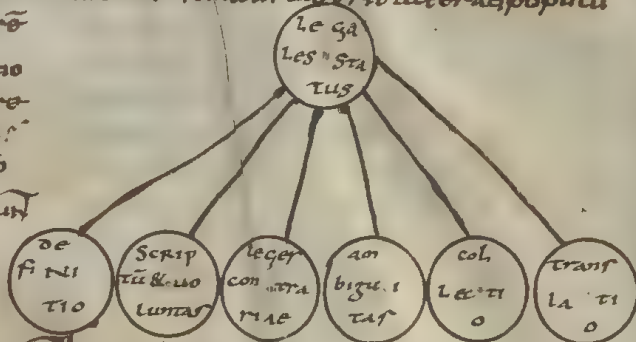 le ga
les · sta
tus
de
fi ni
tio
scrip
tū & uo
luntas
leges
con tra
riae
am
bigu i
tas
col
lec ti
o
trans
la ti
o